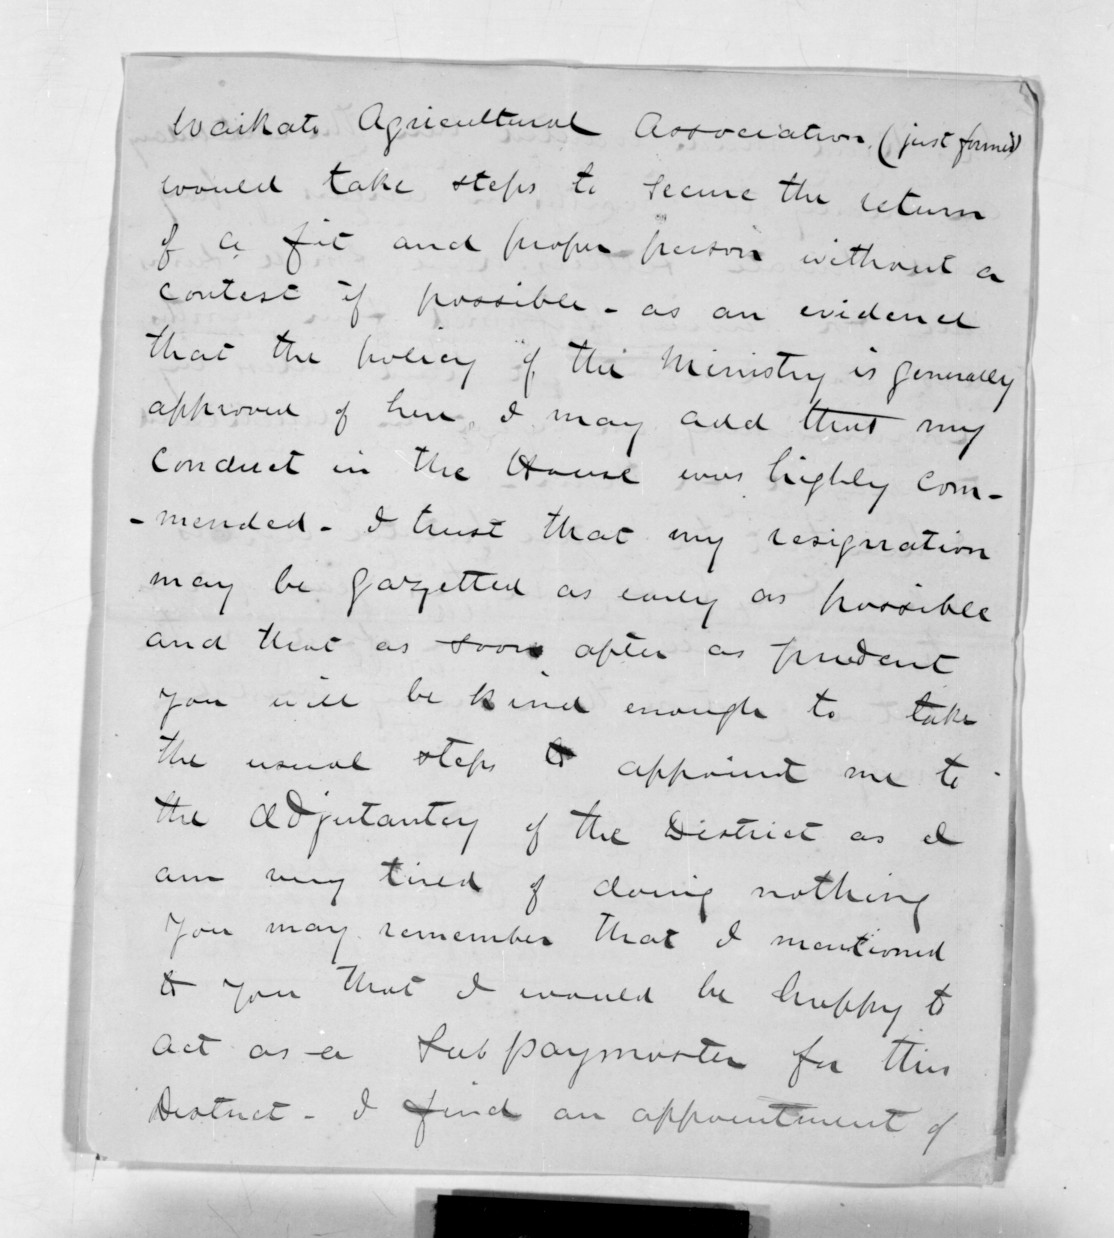 Waikato Agricultural Association (just formed)
would take steps to secure the return
of a fit and proper person without a
contest if possible - as an evidence
that the policy of the Ministry is generally
approved of here. I may add that my
conduct in the House was highly com-
-mended - I trust that my resignation
may be gazetted as early as possible
and that as soon after as prudent
you will be kind enough to take
the usual steps to appoint me to
the Adjutantcy of the District as I
am very tired of doing nothing
You may remember that I mentioned
to you that I would be happy to
act as a Sub paymaster for this
District - I find an appointment of